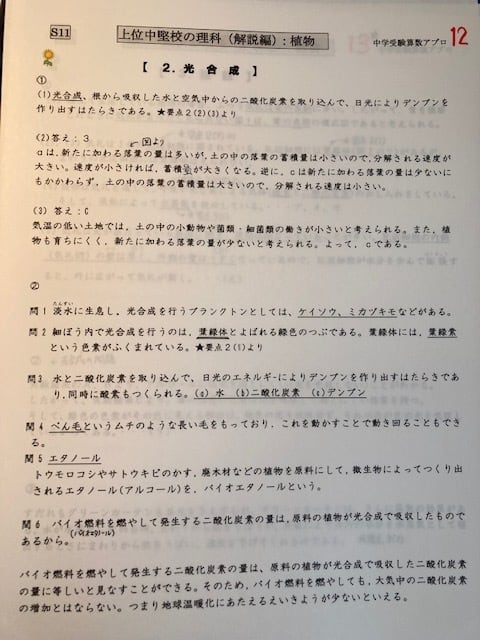 S11
上位中堅校の理科（解説編）：植物
中学受験算数アプロ
12
【 2．光合成 】
①
(1)光合成、根から吸収した水と空気中からの二酸化炭素を取り込んで、日光によりデンプンを
作り出すはたらきである。★要点2(2)(3)より
(2)答え：3
図より
aは、新たに加わる落葉の量は多いが、土の中の落葉の蓄積量は小さいので、分解される速度が
大きい。速度が小さければ、蓄積量が大きくなる。逆に、cは新たに加わる落葉の量は少ないに
もかかわらず、土の中の落葉の蓄積量は大きいので、分解される速度は小さい。
(3) 答え：C
気温の低い土地では、土の中の小動物や菌類・細菌類の働きが小さいと考えられる。また、植
物も育ちにくく、新たに加わる落葉の量が少ないと考えられる。よって、cである。
②
たんすい
問1 淡水に生息し、光合成を行うプランクトンとしては、ケイソウ、ミカヅキモなどがある。
問2 細ぼう内で光合成を行うのは、葉緑体とよばれる緑色のつぶである。葉緑体には、葉緑素
という色素がふくまれている。★要点2(1)より
問3 水と二酸化炭素を取り込んで、日光のエネルギーによりデンプンを作り出すはたらきであ
り、同時に酸素もつくられる。(a) 水 (b)二酸化炭素 (c)デンプン
問4 べん毛というムチのような長い毛をもっており、これを動かすことで動き回ることもでき
る。
問5 エタノール
トウモロコシやサトウキビのかす、廃木材などの植物を原料にして、微生物によってつくり出
されるエタノール(アルコール)を、バイオエタノールという。
問6 バイオ燃料を燃やして発生する二酸化炭素の量は、原料の植物が光合成で吸収したもので
(バイオエタノール)
あるから。
バイオ燃料を燃やして発生する二酸化炭素の量は、原料の植物が光合成で吸収した二酸化炭素
の量に等しいと見なすことができる。そのため、バイオ燃料を燃やしても、大気中の二酸化炭素
の増加とはならない。つまり地球温暖化にあたえるえいきようが少ないといえる。